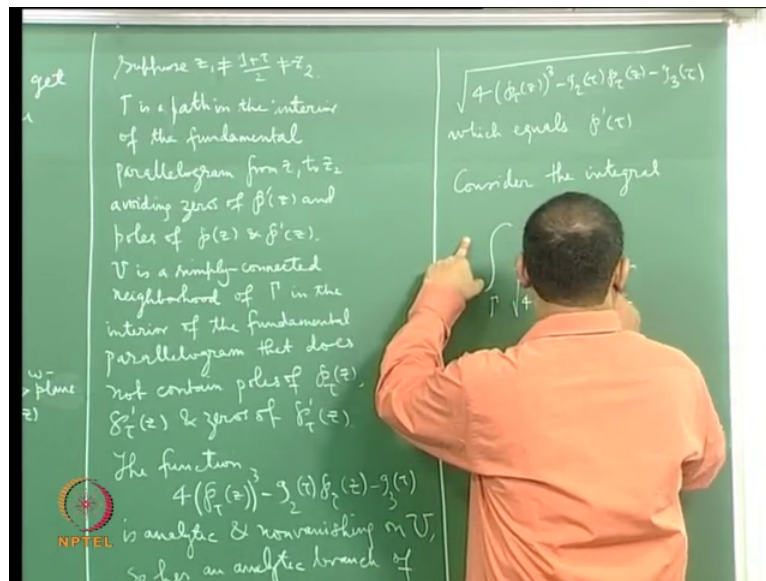 get
w-
plane
z)
Suppose z₁ ≠ (1+τ)/2 ≠ z₂.
Γ is a path in the interior
of the fundamental
parallelogram from z₁ to z₂
avoiding zeros of ℘'(z) and
poles of ℘(z) & ℘'(z).
U is a simply-connected
neighborhood of Γ in the
interior of the fundamental
parallelogram that does
not contain poles of ℘_τ(z),
℘'_τ(z) & zeros of ℘'_τ(z).
The function
4(℘_τ(z))³ - g₂(τ)℘_τ(z) - g₃(τ)
is analytic & nonvanishing on U,
so has an analytic branch of
√4(℘_τ(z))³ - g₂(τ)℘_τ(z) - g₃(τ)
which equals ℘'(τ)
Consider the integral
∫_Γ √4
NPTEL